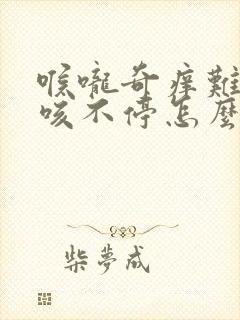 喉嚨奇痒難
咳不停怎麼
柴夢成